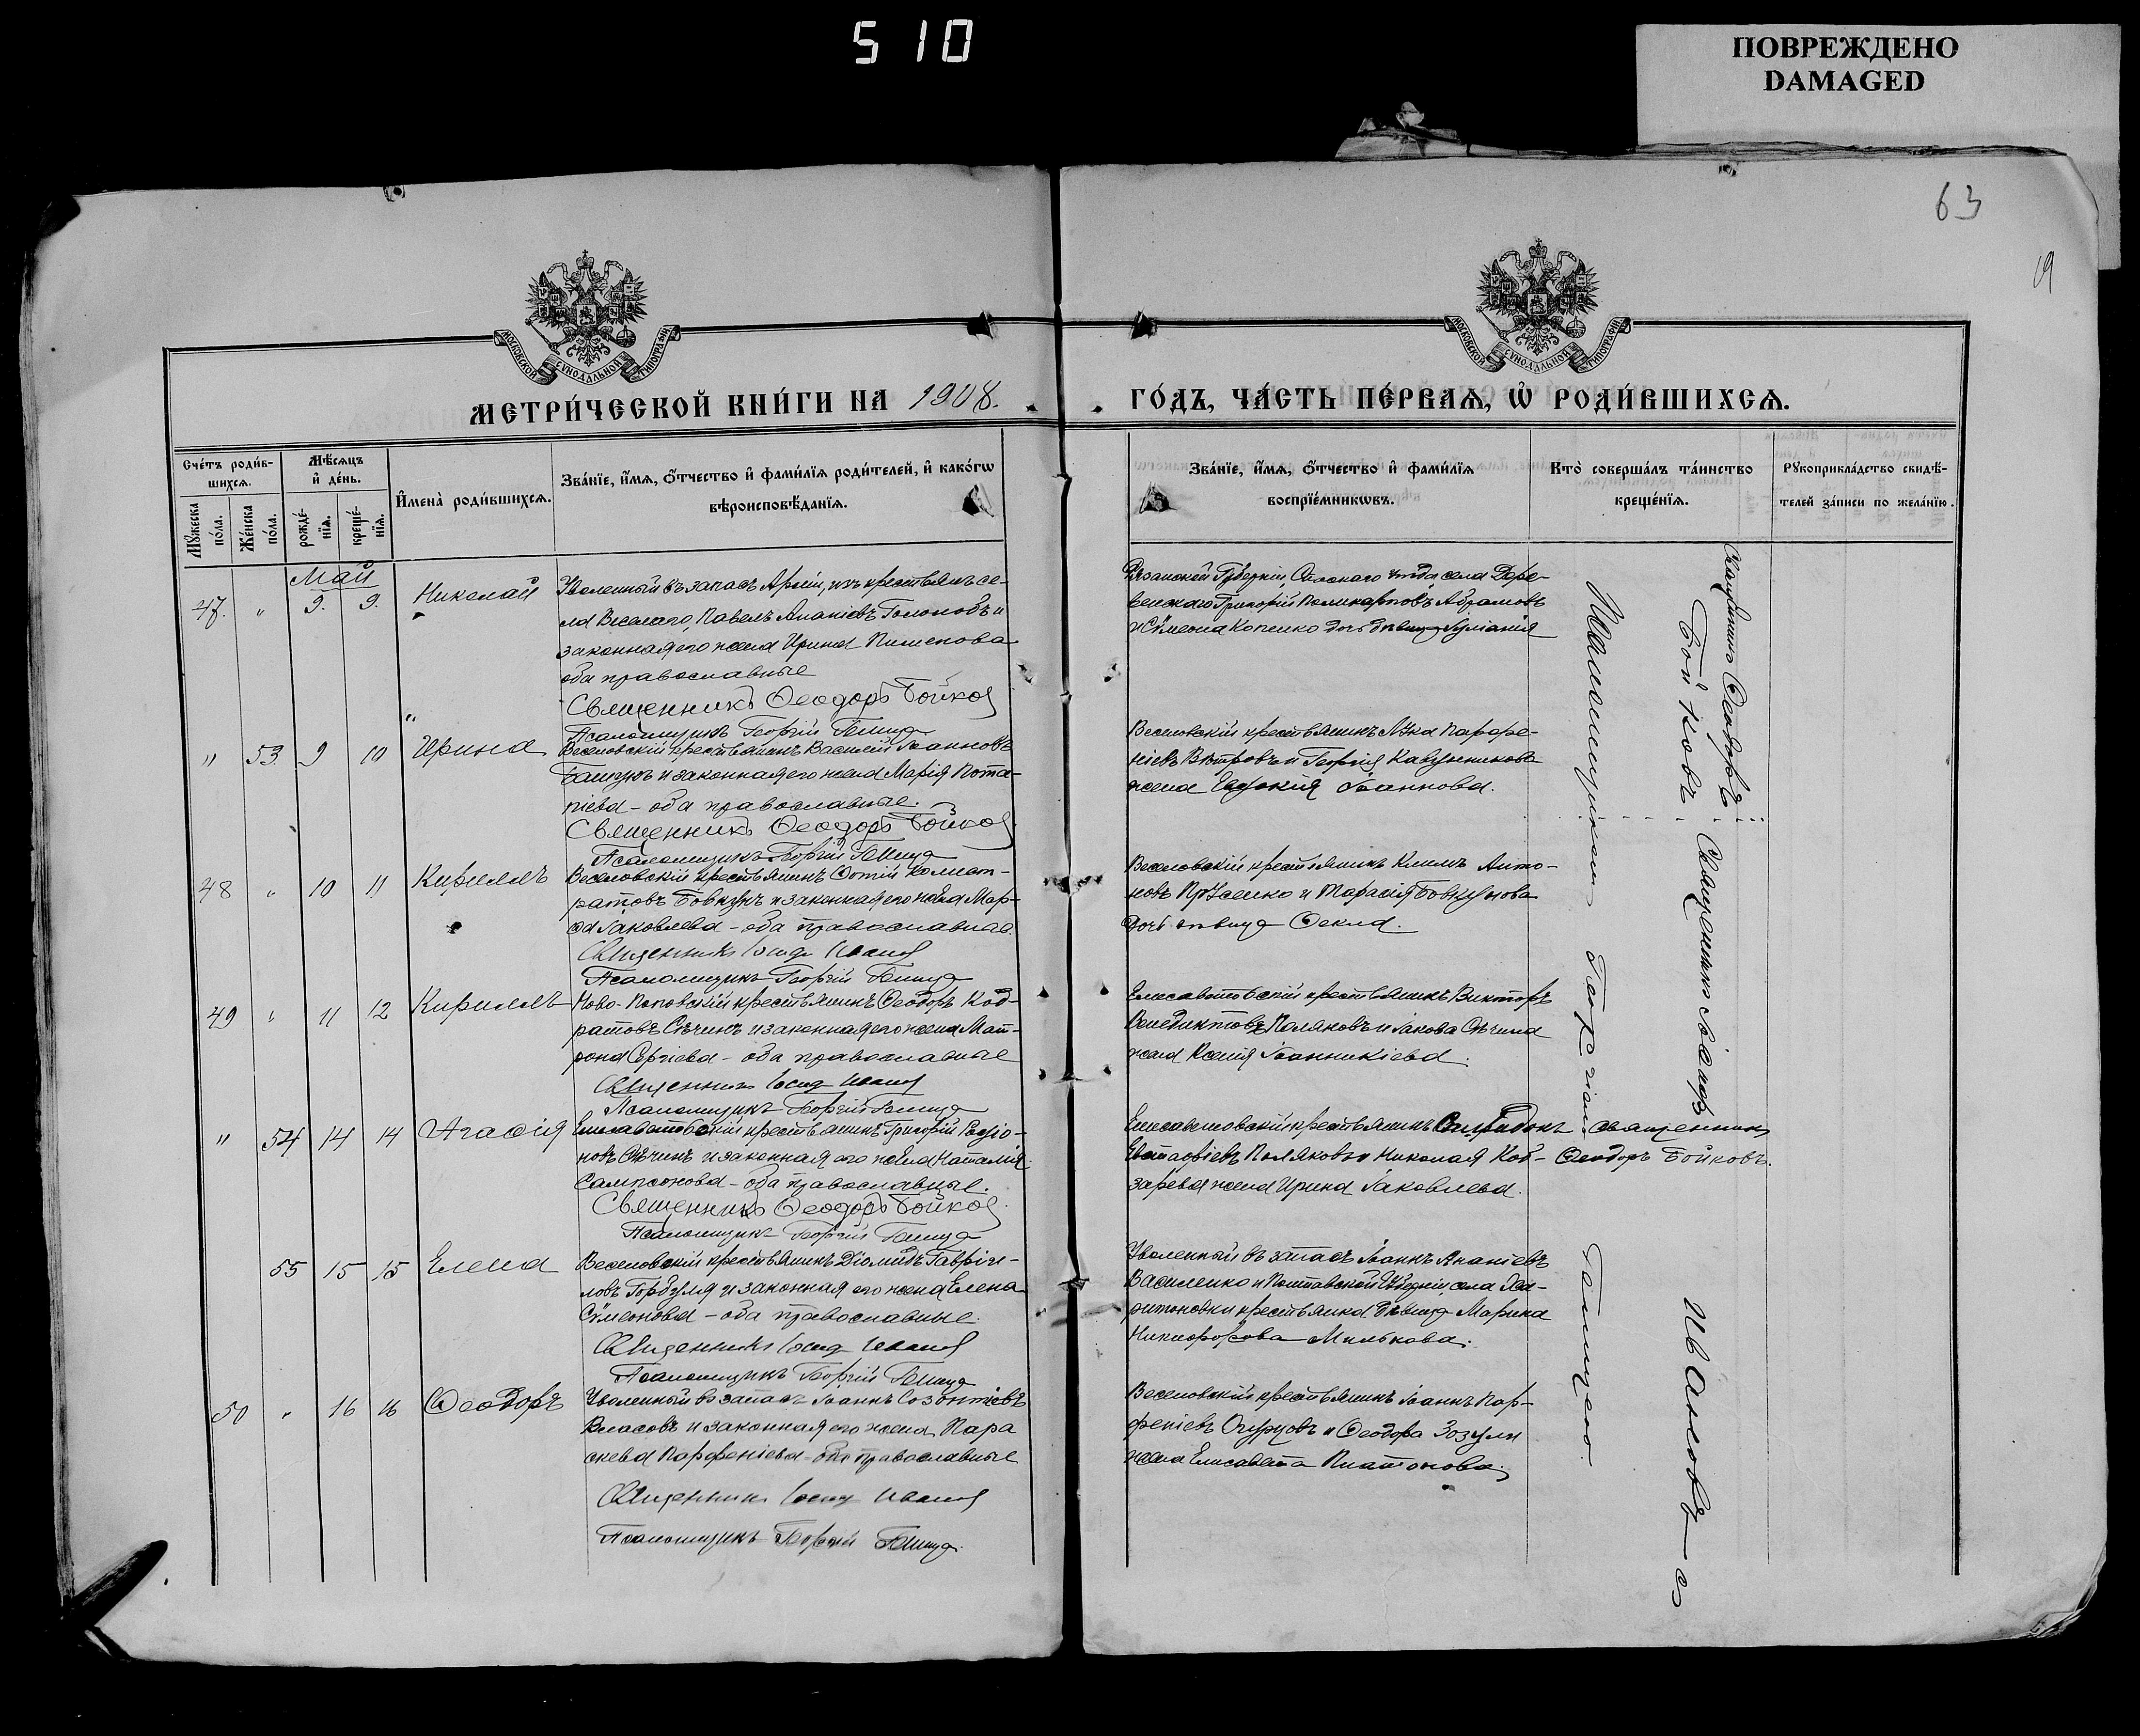 510
ПОВРЕЖДЕНО
DAMAGED
63
19
МОСКОВСКОЙ СѴНОДАЛЬНОЙ ТИПОГРАФІИ
МОСКОВСКОЙ СѴНОДАЛЬНОЙ ТИПОГРАФІИ
МЕТРИ́ЧЕСКОЙ КНИ́ГИ НА 1908.
ГО́ДЪ, ЧА́СТЬ ПЕ́РВАѦ, Ѡ҆ РОДИ́ВШИХСѦ.
Сче́тъ роди́в-
шихсѧ.
Мѣ́сѧцъ
и҆ де́нь.
Мꙋ́жеска
по́ла.
Же́нска
по́ла.
рожде́-
нїѧ.
креще́-
нїѧ.
И҆мена̀ роди́вшихсѧ.
Зва́нїе, и҆́мѧ, ѻ҆́тчество и҆ фами́лїѧ роди́телей, и҆ како́гѡ
вѣроисповѣ́данїѧ.
Зва́нїе, и҆́мѧ, ѻ҆́тчество и҆ фами́лїѧ
воспрїе́мникѡвъ.
Кто̀ соверша́лъ та́инство
креще́нїѧ.
Рꙋкоприкла́дство свидѣ́-
телей за́писи по жела́нїю.
Май
47. " 9. 9. Николай
Уволенный въ запасъ Арміи, изъ крестьянъ се-
ла Веселаго, Павелъ Ананіевъ и
законная его жена Ирина Пименова
оба православные
Священникъ Ѳеодоръ Бойков
Псаломщикъ Георгій
Рязанской Губерніи, уѣзда, села Дере-
венскаго Григорій Поликарповъ Абрамовъ
и Сѵмеона Копенко дочь дѣвица
" 53 9 10 Ирина
Веселовскій крестьянинъ Василій Іоанновъ
и законная его жена Марія Пота-
піева - оба православные.
Священникъ Ѳеодоръ Бойков
Псаломщикъ Георгій
Веселовскій крестьянинъ Лука Парфе-
ніевъ Вѣтровъ и Георгія Кавунникова
жена Евдокія Іоаннова.
48 " 10 11 Кириллъ
Веселовскій крестьянинъ Фотій
ратовъ Бовкунъ и законная его жена Мар-
ѳа Іаковлева - оба православные.
Священникъ Іоаннъ Иванов
Псаломщикъ Георгій
Веселовскій крестьянинъ Климъ Анто-
новъ и Тарасія Бовкунова
дочь дѣвица Ѳекла.
49 " 11 12 Кириллъ
Ново-Поповскій крестьянинъ Ѳеодоръ Код-
ратовъ Сѣчинъ и законная его жена Мат-
рона Сергіева - оба православные
Священникъ Іоаннъ Иванов
Псаломщикъ Георгій
Елисаветовскій крестьянинъ Викторъ
Венедиктовъ Поляковъ и Іакова Сѣчина
жена Ксенія Іоанникіева.
" 54 14 14 Агаѳія
Елисаветовскій крестьянинъ Григорій Родіо-
новъ Сѣчинъ и законная его жена Наталія
Сампсонова - оба православные.
Священникъ Ѳеодоръ Бойков
Псаломщикъ Георгій
Елисаветовскій крестьянинъ Спиридонъ
Евстафіевъ Поляковъ и Николая Коб-
зарева жена Ирина Іаковлева.
Священникъ
Ѳеодоръ Бойковъ.
55 15 15 Елена
Веселовскій крестьянинъ Діомидъ Гавріи-
ловъ Горбуля и законная его жена Елена
Сѵмеонова - оба православные.
Священникъ Іоаннъ Иванов
Псаломщикъ Георгій
Уволенный въ запасъ Іоаннъ Ананіевъ
Василенко и Полтавской Губерніи, села Ха-
ритоновки крестьянка дѣвица Марина
Никифорова Милькова.
50 " 16 16 Ѳеодоръ
Уволенный въ запасъ Іоаннъ Созонтіевъ
Власовъ и законная его жена Пара
скева Парфеніева - оба православные
Священникъ Іоаннъ Иванов
Псаломщикъ Георгій
Веселовскій крестьянинъ Іоаннъ Пар-
феніевъ Огурцовъ и Ѳеодора Зозули
жена Елисавета Платонова.
Священникъ Ѳеодоръ
Бойковъ
Священникъ Іоаннъ
Ивановъ съ
Псаломщикомъ Георгіемъ